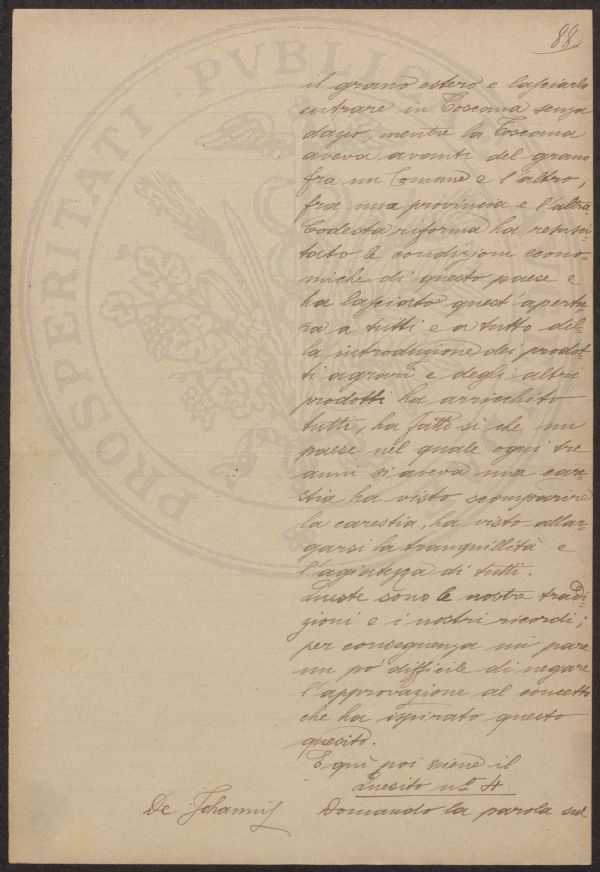 88
PROSPERITATI PVBLIC
il grano estero e lasciarlo
entrare in Toscana senza
dazio, mentre la Toscana
aveva avanti del grano
fra un Comune e l'altro,
fra una provincia e l'altra.
Codesta riforma ha resusci-
tato le condizioni econo-
miche di questo paese e
ha lasciato quest'apertu-
ra a tutti e a tutto del-
la introduzione dei prodot-
ti agrarii e degli altri
prodotti ha arricchito
tutti, ha fatto sì che un
paese nel quale ogni tre
anni si aveva una care-
stia ha visto scomparire
la carestia, ha visto allar-
garsi la tranquillità e
l'agiatezza di tutti.
Queste sono le nostre tradi-
zioni e i nostri ricordi;
per conseguenza mi pare
un po' difficile di negare
l'approvazione al concetto
che ha ispirato questo
quesito.
E qui poi viene il
Quesito n.º 4
De Johannis Domando la parola sul